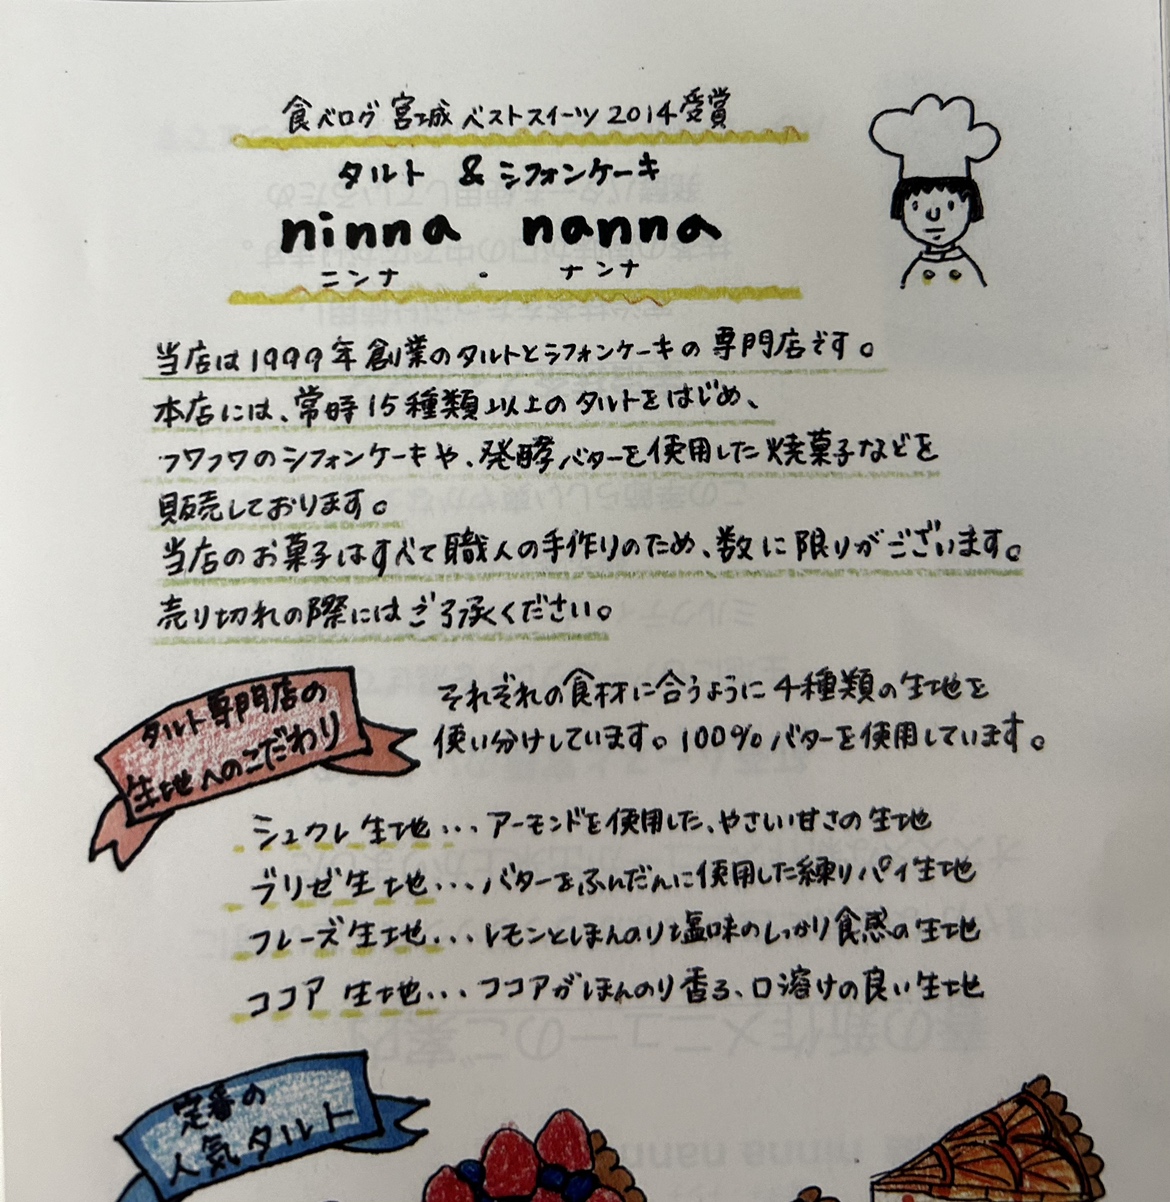 食べログ 宮城 ベストスイーツ 2014受賞
タルト & シフォンケーキ
ninna nanna
ニンナ・ナンナ
当店は1999年創業のタルトとシフォンケーキの専門店です。
本店には、常時15種類以上のタルトをはじめ、
フワフワのシフォンケーキや、発酵バターを使用した焼菓子などを
販売しております。
当店のお菓子はすべて職人の手作りのため、数に限りがございます。
売り切れの際にはご了承ください。
タルト専門店の
生地へのこだわり
それぞれの食材に合うように4種類の生地を
使い分けしています。100%バターを使用しています。
シュクレ生地...アーモンドを使用した、やさしい甘さの生地
ブリゼ生地...バターをふんだんに使用した練りパイ生地
フレーズ生地...レモンとほんのり塩味のしっかり食感の生地
ココア生地...ココアがほんのり香る、口溶けの良い生地
定番の
人気タルト